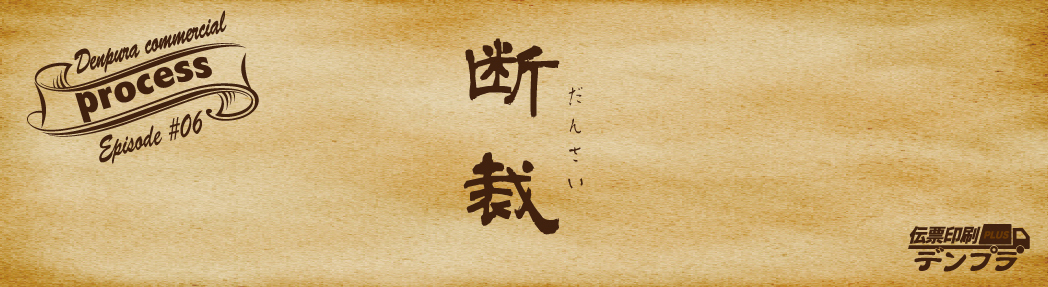 Denpura commercial
process
Episode #06
断裁
だんさい
伝票印刷PLUS
デンプラ